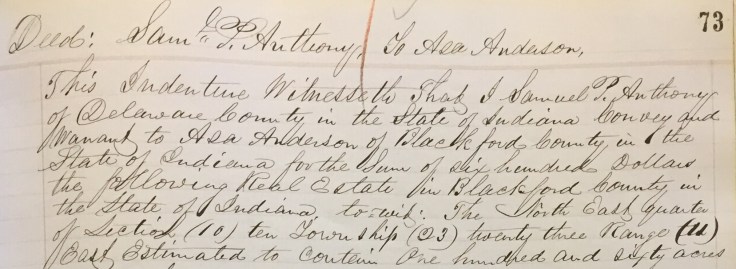 73
Deed: Saml. P. Anthony, To Asa Anderson,
This Indenture Witnesseth That, I Samuel P. Anthony
of Delaware County in the State of Indiana Convey and
Warrant to Asa Anderson of Blackford County in the
State of Indiana for the Sum of six hundred Dollars
the following Real Estate in Blackford County in
the State of Indiana, to-wit: The North East quarter
of Section (10) ten Township (23) twenty three Range (11)
East Estimated to contain One hundred and sixty acres